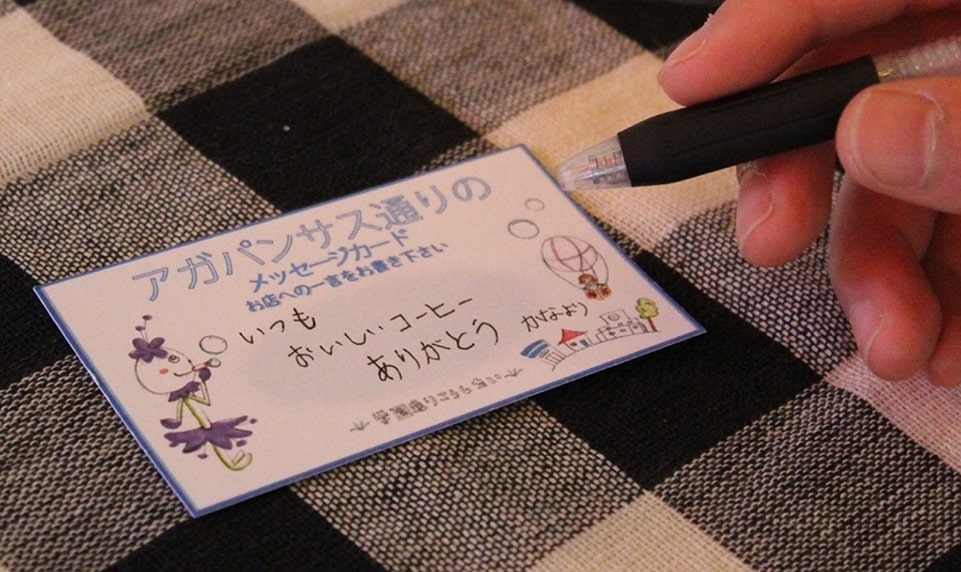 アガパンサス通りの
メッセージカード
お店への一言をお書き下さい
いつも
おいしいコーヒー
ありがとう
かなより